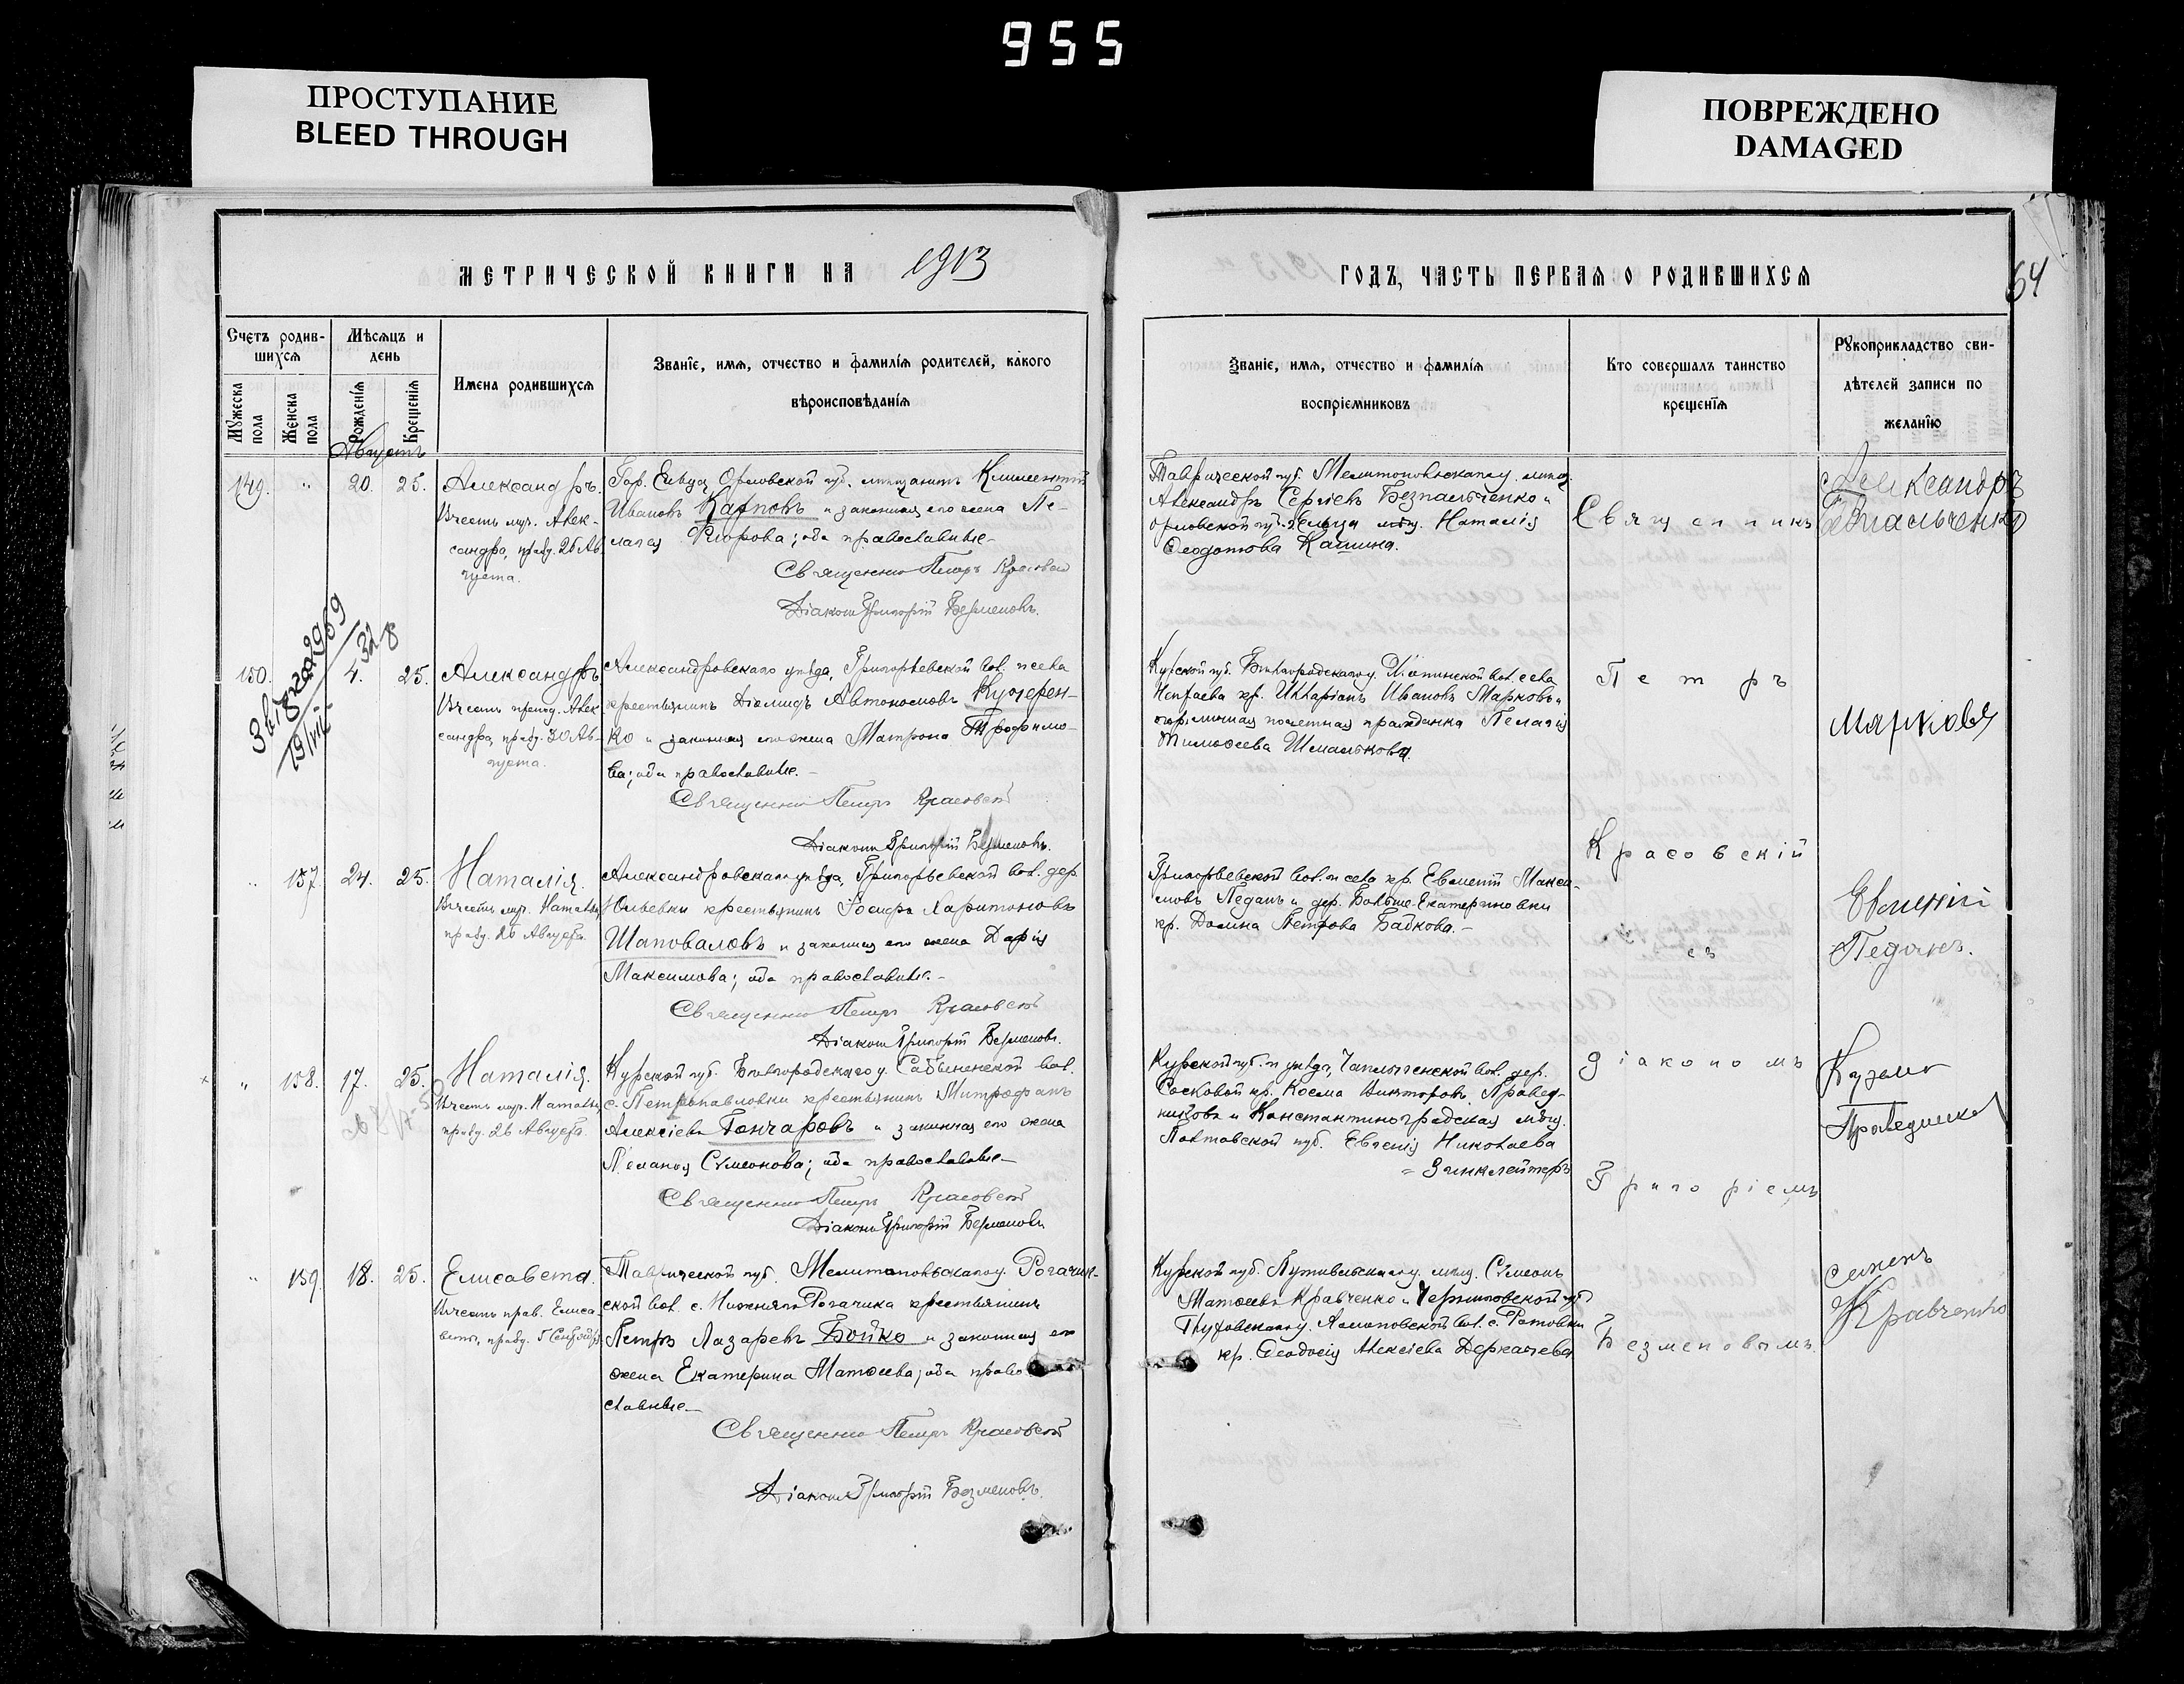 955
ПРОСТУПАНИЕ
BLEED THROUGH
ПОВРЕЖДЕНО
DAMAGED
МЕТРИЧЕСКОЙ КНИГИ НА 1913
ГОДЪ, ЧАСТЬ ПЕРВАЯ О РОДИВШИХСЯ
64
Счетъ родив-
шихся
Мужеска пола
Женска пола
Мѣсяцъ и
день
Рожденія
Крещенія
Имена родившихся
Званіе, имя, отчество и фамилія родителей, какого
вѣроисповѣданія
Званіе, имя, отчество и фамилія
воспріемниковъ
Кто совершалъ таинство
крещенія
Рукоприкладство сви-
дѣтелей записи по
желанію
Августъ
149. " 20. 25.
Александръ.
Въ честь муч. Алек-
сандра, празд. 25 Ав-
густа.
Гор. Ельца, Орловской губ. мѣщанинъ Климентій
Ивановъ Карповъ и законная его жена Пе-
лагея; оба православные.-
Священникъ Петръ Красовскій
Діаконъ Григорій Безменовъ.
Таврической губ. Мелитопольскаго у. мѣщ.
Александръ Сергіевъ Безпальченко и
Орловской губ. г. Ельца мѣщ. Наталія
Ѳеодотова Кашина.
Александръ
Безпальченко
150. 4. 25.
Александръ
Въ честь препод. Алек-
сандра, празд. 30 Ав-
густа.
Александровскаго уѣзда, Григорьевской вол. и села
крестьянинъ Автономовъ Кучерен-
ко и законная его жена Матрона Трофимо-
ва; оба православные.-
Священникъ Петръ Красовскій
Діаконъ Григорій Безменовъ.
Курской губ. Бѣлгородскаго у. вол. села
кр. Илларіонъ Ивановъ Марковъ и
потомственная почетная гражданка Пелагія
Тимоѳеева Шмалькова.
Марковъ
" 157. 24. 25.
Наталія.
Въ честь муч. Наталіи,
празд. 26 Августа.
Александровскаго уѣзда, Григорьевской вол. дер.
Юльевки крестьянинъ Іосифъ Харитоновъ
Шаповаловъ и законная его жена Дарія
Максимова; оба православные.-
Священникъ Петръ Красовскій
Діаконъ Григорій Безменовъ.
Григорьевской вол. и села кр. Евменій Макси-
мовъ Педанъ и дер. Больше-Екатериновки
кр. Домна Петрова Бабкова.-
Евменій
Педанъ.
" 158. 17. 25.
Наталія.
Въ честь муч. Наталіи,
празд. 26 Августа.
Курской губ. Бѣлгородскаго у. Сабынинской вол.
с. Петропавловки крестьянинъ Митрофанъ
Алексіевъ Гончаровъ и законная его жена
Пелагея Сѵмеонова; оба православные.-
Священникъ Петръ Красовскій
Діаконъ Григорій Безменовъ
Курской губ. и уѣзда, вол. дер.
Косма Викторовъ Правед-
никовъ и Константиноградская мѣщ.
Полтавской губ. Евгенія Николаева
Зинклейтеръ
Кузьма
Праведников
" 159. 18. 25.
Елисавета.
Въ честь прав. Елиса-
веты, празд. 5 Сентября
Таврической губ. Мелитопольскаго у. Рогачик-
ской вол. с. Нижняго Рогачика крестьянинъ
Петръ Лазаревъ Бойко и законная его
жена Екатерина Матѳеева; оба право-
славные.-
Священникъ Петръ Красовскій
Діаконъ Григорій Безменовъ.
Курской губ. Путивльскаго у. мѣщ. Сѵмеонъ
Матѳеевъ Кравченко и Черниговской губ.
Глуховскаго у. вол. с.
кр. Ѳеодосія Алексіева Деркачева
Семенъ
Кравченко
Священникъ
Петръ
Красовскій
съ
діакономъ
Григоріемъ
Безменовымъ.